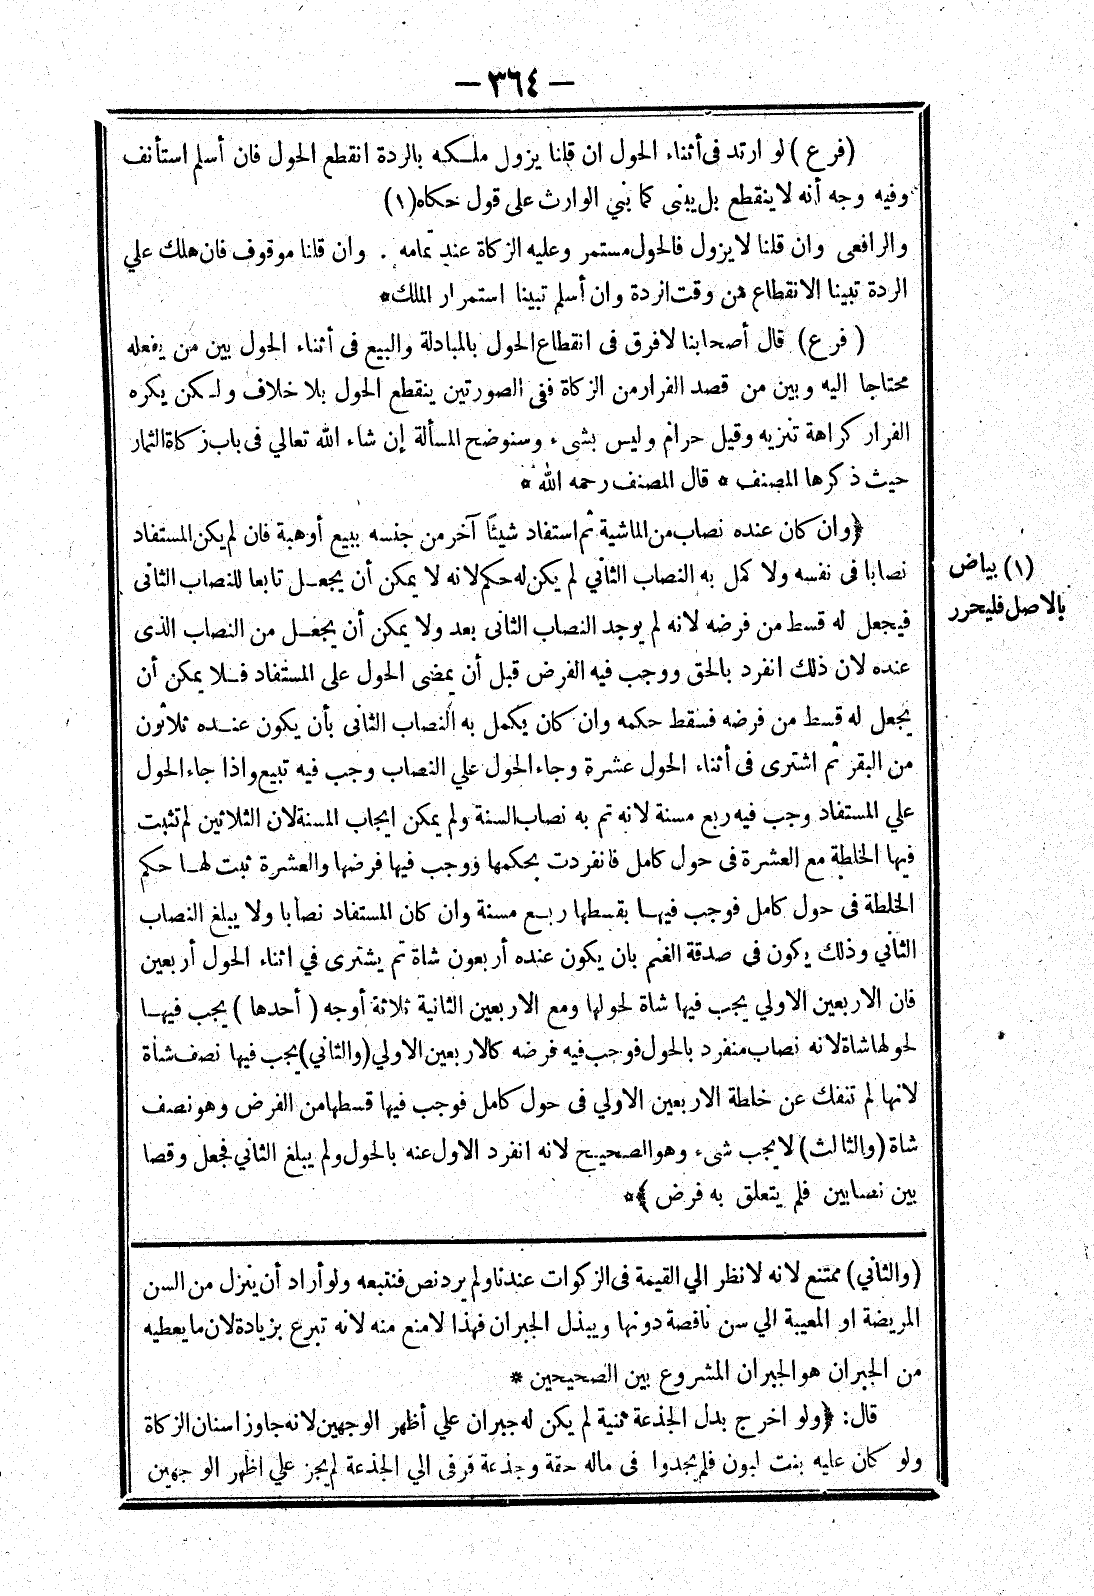 — ٣٦٤ —
(فرع) لو ارتد فى أثناء الحول ان قلنا يزول ملكه بالردة انقطع الحول فان أسلم استأنف
وفيه وجه أنه لا ينقطع بل يبنى كما بنى الوارث على قول حكاه (١)
والرافعى وان قلنا لا يزول فالحول مستمر وعليه الزكاة عند تمامه . وان قلنا موقوف فان هلك علي
الردة تبينا الانقطاع من وقت الردة وان أسلم تبينا استمرار الملك *
(فرع) قال أصحابنا لافرق فى انقطاع الحول بالمبادلة والبيع فى أثناء الحول بين من يفعله
محتاجا اليه وبين من قصد الفرار من الزكاة ففي الصورتين ينقطع الحول بلا خلاف ولكن يكره
الفرار كراهة تنزيه وقيل حرام وليس بشىء وسنوضح المسألة إن شاء الله تعالي فى باب زكاة الثمار
حيث ذكرها المصنف * قال المصنف رحمه الله *
﴿وان كان عنده نصاب من الماشية ثم استفاد شيئًا آخر من جنسه ببيع أو هبة فان لم يكن المستفاد
نصابا فى نفسه ولا كمل به النصاب الثاني لم يكن له حكم لانه لا يمكن أن يجعل تابعا للنصاب الثانى
(١) بياض
بالاصل فليحرر
فيجعل له قسط من فرضه لانه لم يوجد النصاب الثانى بعد ولا يمكن أن يجعل من النصاب الذى
عنده لان ذلك انفرد بالحق ووجب فيه الفرض قبل أن يمضى الحول على المستفاد فلا يمكن أن
يجعل له قسط من فرضه فسقط حكمه وان كان يكمل به النصاب الثانى بأن يكون عنده ثلاثون
من البقر ثم اشترى فى أثناء الحول عشرة وجاء الحول علي النصاب وجب فيه تبيع واذا جاء الحول
علي المستفاد وجب فيه ربع مسنة لانه تم به نصاب السنة ولم يمكن ايجاب المسنة لان الثلاثين لم تثبت
فيها الخلطة مع العشرة فى حول كامل فانفردت بحكمها ووجب فيها فرضها والعشرة ثبت لها حكم
الخلطة فى حول كامل فوجب فيها بقسطها ربع مسنة وان كان المستفاد نصابا ولا يبلغ النصاب
الثاني وذلك يكون فى صدقة الغنم بان يكون عنده أربعون شاة ثم يشترى في اثناء الحول أربعين
فان الاربعين الاولي يجب فيها شاة لحولها ومع الاربعين الثانية ثلاثة أوجه (أحدها) يجب فيها
لحولها شاة لانه نصاب منفرد بالحول فوجب فيه فرضه كالاربعين الاولي (والثاني) يجب فيها نصف شاة
لانها لم تنفك عن خلطة الاربعين الاولي فى حول كامل فوجب فيها قسطها من الفرض وهو نصف
شاة (والثالث) لا يجب شىء وهو الصحيح لانه انفرد الاول عنه بالحول ولم يبلغ الثاني فجعل وقصا
بين نصابين فلم يتعلق به فرض﴾ *
(والثاني) ممتنع لانه لا نظر الي القيمة فى الزكوات عندنا ولم يرد نص فنتبعه ولو أراد أن ينزل من السن
المريضة او المعيبة الي سن ناقصة دونها ويبذل الجبران فهذا لامنع منه لانه تبرع بزيادة لان ما يعطيه
من الجبران هو الجبران المشروع بين الصحيحين *
قال: ﴿ولو اخرج بدل الجذعة ثنية لم يكن له جبران علي أظهر الوجهين لانه جاوز اسنان الزكاة
ولو كان عليه بنت لبون فلم يجدوا فى ماله حقة وجذعة فرقى الي الجذعة لم يجز علي اظهر الوجهين